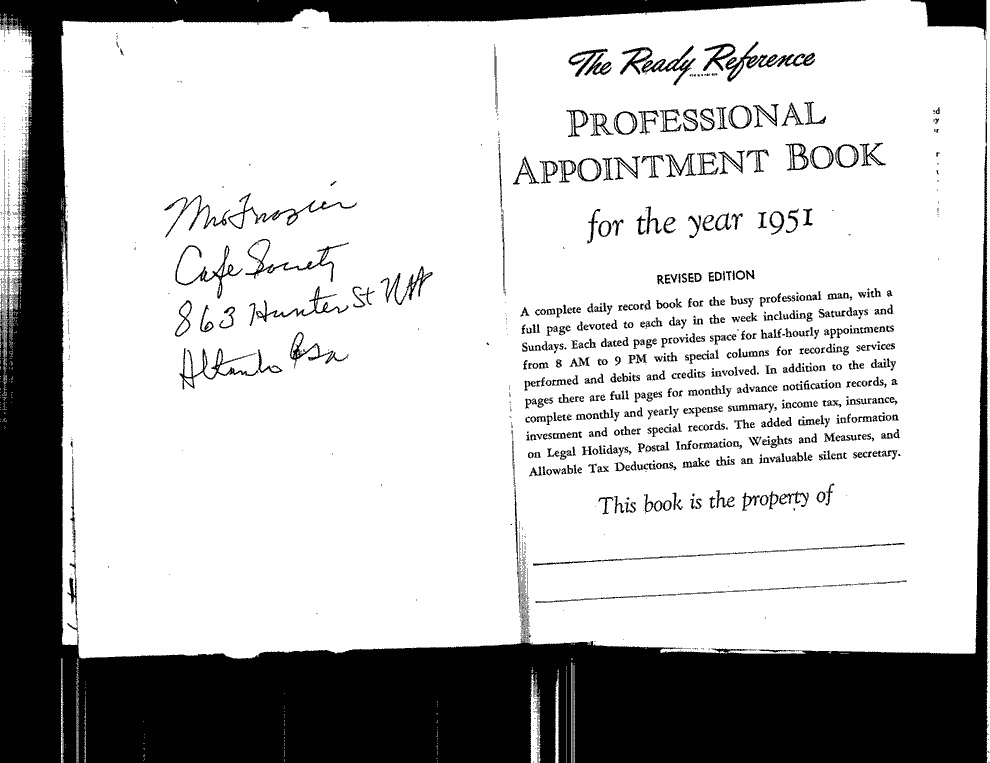 Mrs Frazier
Cafe Society
863 Hunter St NW
Atlanta Ga
The Ready Reference
PROFESSIONAL
APPOINTMENT BOOK
for the year 1951
REVISED EDITION
A complete daily record book for the busy professional man, with a
full page devoted to each day in the week including Saturdays and
Sundays. Each dated page provides space for half-hourly appointments
from 8 AM to 9 PM with special columns for recording services
performed and debits and credits involved. In addition to the daily
pages there are full pages for monthly advance notification records, a
complete monthly and yearly expense summary, income tax, insurance,
investment and other special records. The added timely information
on Legal Holidays, Postal Information, Weights and Measures, and
Allowable Tax Deductions, make this an invaluable silent secretary.
This book is the property of